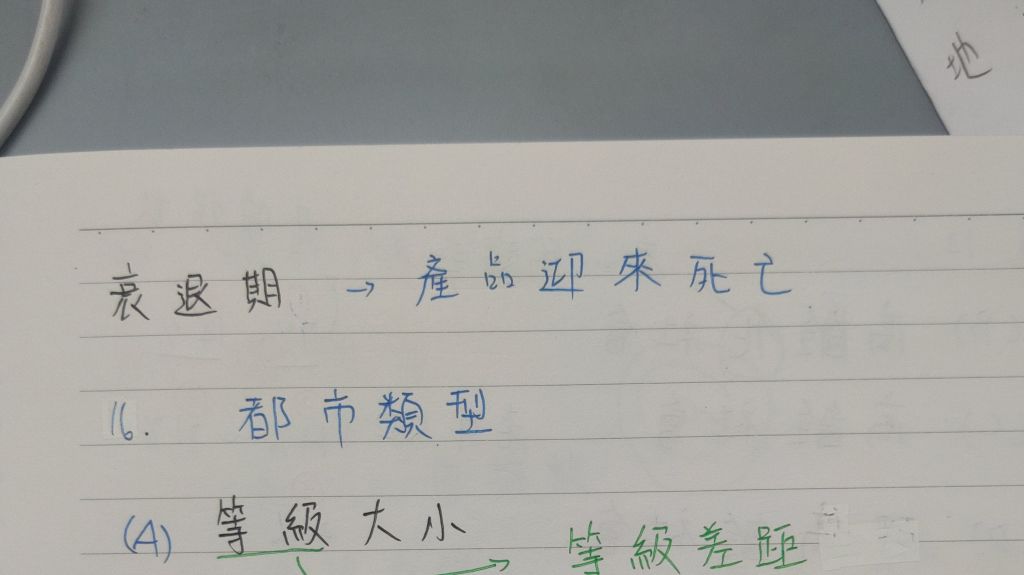 地
衰退期 → 產品迎來死亡
16. 都市類型
(A) 等級大小 → 等級差距